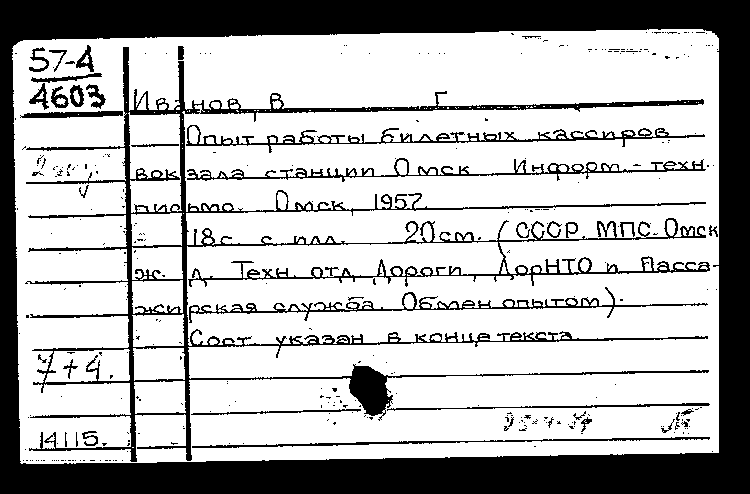 57-4
4603
Иванов, В Г
Опыт работы билетных кассиров
2 экз.
вокзала станции Омск Информ.-техн.
письмо. Омск, 1957.
18с. с илл. 20см. (СССР. МПС. Омск
ж. д. Техн. отд Дороги, ДорНТО и Пасса-
жирская служба. Обмен опытом).
Сост. указан в конце текста.
7+4.
14115.